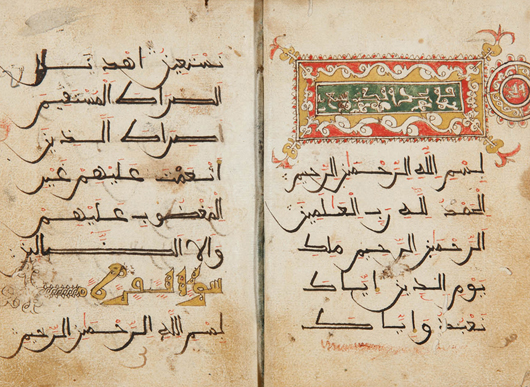 بسم الله الرحمن الرحيم
الحمد لله رب العلمين
الرحمن الرحيم ملك
يوم الدين اياك
نعبد واياك
نستعين اهدنا
الصراط المستقيم
صراط الذين
انعمت عليهم غير
المغضوب عليهم
ولا الضالين
سورة البقرة
بسم الله الرحمن الرحيم